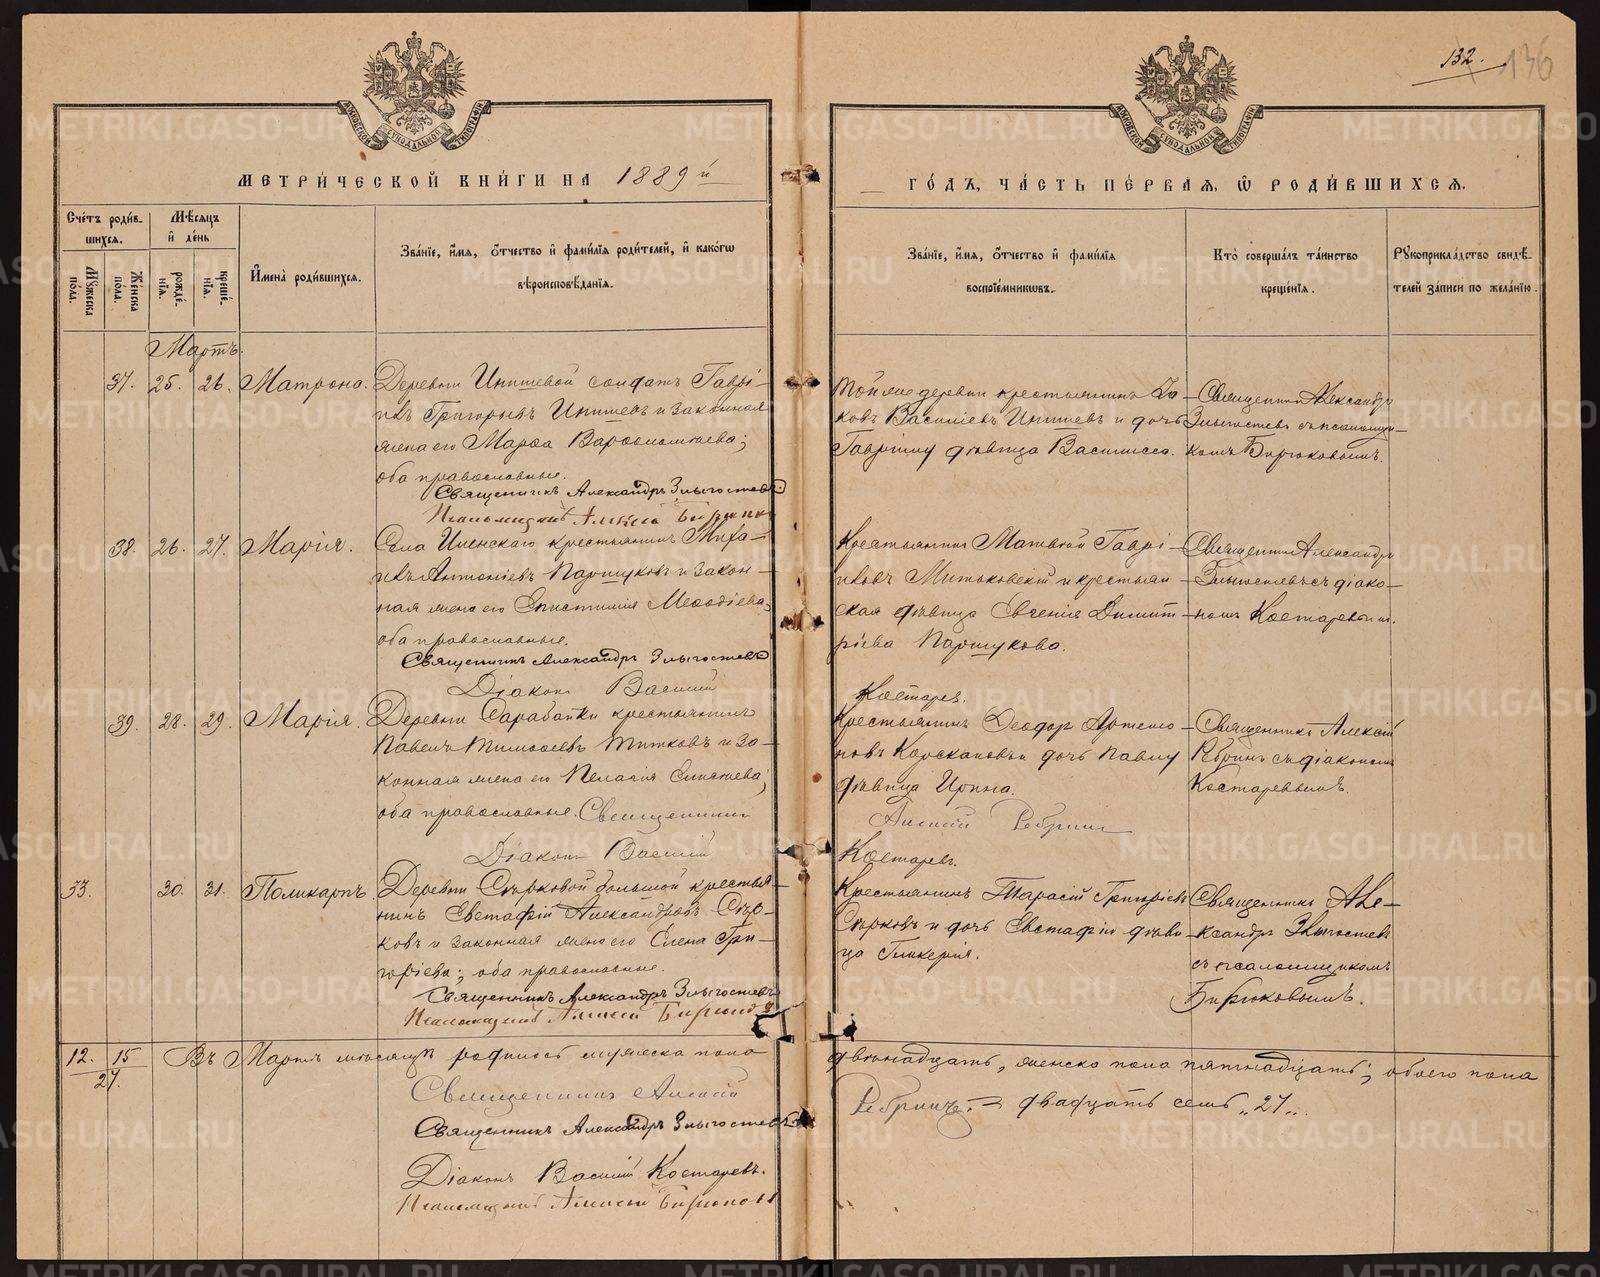 132. 136
МЕТРИ́ЧЕСКОЙ КНИ́ГИ НА 1889й ГО́ДЪ, ЧА́СТЬ ПЕ́РВАЯ, Ѽ РОДИ́ВШИХСЯ.
Сче́тъ роди́в-
шихся.
Му́жеска
пола.
Же́нска
пола.
Мѣ́сяцъ
и҆ де́нь
рожде́-
нїя.
креще́-
нїя.
И҆мена̀ роди́вшихся.
Зва́нїе, и҆́мя, ѻ҆́тчество и҆ фами́лїя роди́телей, и҆ како́гѡ
вѣроисповѣ́данїя.
Зва́нїе, и҆́мя, ѻ҆́тчество и҆ фами́лїя
воспрїе́мниковъ.
Кто̀ соверша́лъ та́инство
креще́нїя.
Рꙋкоприкла́дство свидѣ́-
телей за́писи по жела́нїю.
Мартъ.
37. 25. 26. Матрона.
Деревни солдатъ Гаврі-
илъ Григорьевъ и законная
жена его Марѳа Варѳоломеева;
оба православные.
Священникъ Александръ Злыгостевъ
Псаломщикъ Алексій Бирюковъ
Тойже деревни крестьянинъ Яковъ
Васильевъ и дочь
Гавріилу дѣвица Васса.
Священникъ Александръ
Злыгостевъ съ псаломщи-
комъ Бирюковымъ.
38. 26. 27. Марія.
Села Иленскаго крестьянинъ Миха-
илъ Антоніевъ Паршуковъ и закон-
ная жена его Епистимія Меѳодіева;
оба православные.
Священникъ Александръ Злыгостевъ
Діаконъ Василій Костаревъ.
Крестьянинъ Матвѣй Гаврі-
иловъ Митьковскій и крестьян-
ская дѣвица Евгенія Димит-
ріева Паршукова.
Священникъ Александръ
Злыгостевъ съ діако-
номъ Костаревымъ.
39. 28. 29. Марія.
Деревни Сарабайки крестьянинъ
Павелъ Тимоѳеевъ Титковъ и за-
конная жена его Пелагія;
оба православные. Священникъ Алексій Ребринъ
Діаконъ Василій Костаревъ.
Крестьянинъ Ѳеодоръ Артемо-
новъ и дочь Павлу
дѣвица Ирина.
Священникъ Алексій
Ребринъ съ діакономъ
Костаревымъ.
33. 30. 31. Поликарпъ.
Деревни Сѣрковой большой крестья-
нинъ Евстафій Александровъ Сѣр-
ковъ и законная жена его Елена Гри-
горіева; оба православные.
Священникъ Александръ Злыгостевъ
Псаломщикъ Алексій Бирюковъ
Крестьянинъ Тарасій Григоріевъ
Сѣрковъ и дочь Евстафію дѣви-
ца Гликерія.
Священникъ Але-
ксандръ Злыгостевъ
съ псаломщикомъ
Бирюковымъ.
12. 15
27.
Въ Мартѣ мѣсяцѣ родилось мужеска пола двѣнадцать, женска пола пятнадцать; обоего пола
двадцать семь „27„.
Священникъ Алексій Ребринъ.
Священникъ Александръ Злыгостевъ
Діаконъ Василій Костаревъ.
Псаломщикъ Алексій Бирюковъ
METRIKI.GASO-URAL.RU